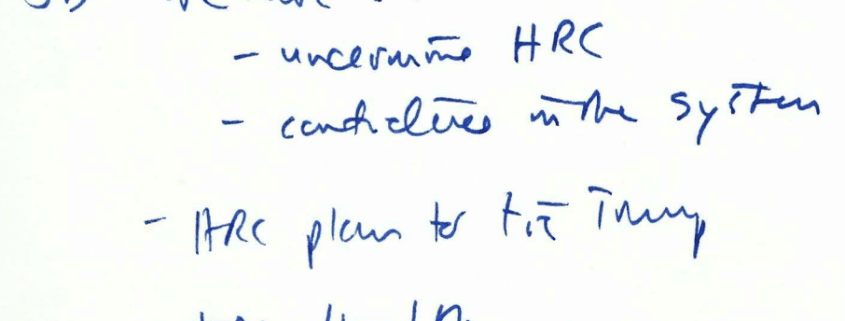 - undermine HRC
- candidates in the system
- HRC plan to tie Trump